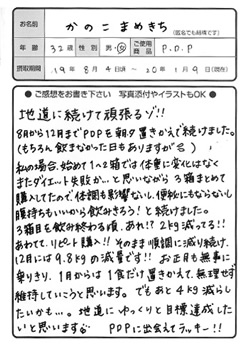 お名前 かのこまめきち
(匿名でも結構です)
年齢 32歳 性別 男・女 ご使用商品 P.D.P
摂取期間 '19年8月4日頃〜'20年1月9日(現在)
●ご感想をお書き下さい 写真添付やイラストもOK●
地道に続けて頑張るゾ!!
8月から12月までPDPを朝夕置きかえで続けました。
(もちろん飲まなかった日もありますが)
私の場合、始めて1〜2箱では体重に変化はなく
またダイエット失敗か…と思いながら3箱まとめて
購入してたので、体調も影響ないし、便秘にもならないし
腹持ちもいいから飲みきろう!と続けました。
3箱目を飲み終わる頃、あれ!?2kg減ってる!!
あわてて、リピート購入!!そのまま順調に減り続け、
12月には9.8kgの減量です!!お正月も無事に
乗りきり、1月からは1食だけ置きかえて、無理せず
維持していこうと思います。でもあと4kg減らし
たいかも…。地道にゆっくりと目標達成した
いと思います PDPに出会えてラッキー!!